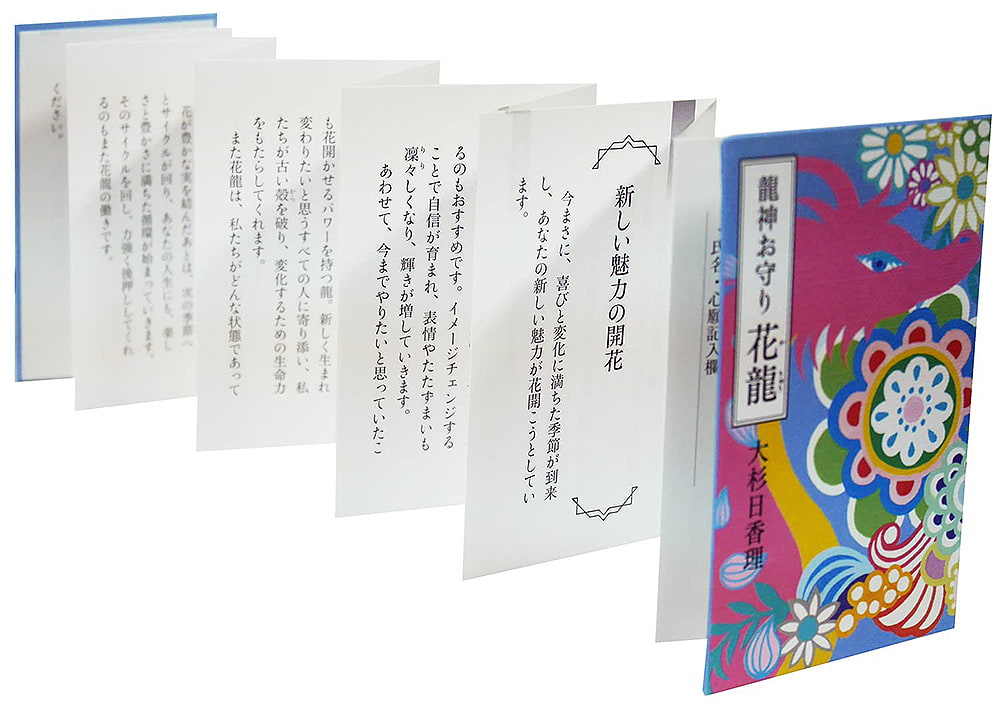 龍神お守り 花龍
かりゅう
大杉日香理
氏名・心願記入欄
新しい魅力の開花
今まさに、喜びと変化に満ちた季節が到来
し、あなたの新しい魅力が花開こうとしてい
ます。
るのもおすすめです。イメージチェンジする
ことで自信が育まれ、表情やたたずまいも
凜々しくなり、輝きが増していきます。
りり
あわせて、今までやりたいと思っていたこ
も花開かせるパワーを持つ龍。新しく生まれ
変わりたいと思うすべての人に寄り添い、私
たちが古い殻を破り、変化するための生命力
から
をもたらしてくれます。
また花龍は、私たちがどんな状態であって
花が豊かな実を結んだあとは、次の季節へ
とサイクルが回り、あなたの人生にも、楽し
さと豊かさに満ちた循環が始まっていきます。
そのサイクルを回し、力強く後押ししてくれ
るのもまた花龍の働きです。
ください。